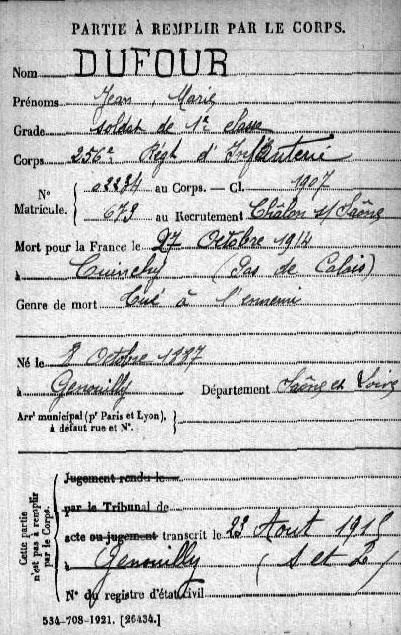 PARTIE À REMPLIR PAR LE CORPS.
Nom DUFOUR
Prénoms Jean Marie
Grade soldat de 1re classe
Corps 256e Régt d'Infanterie
N° Matricule. { 02284 au Corps. — Cl. 1907
673 au Recrutement Châlon s/Saône
Mort pour la France le 27 Octobre 1914
à Cuinchy (Pas de Calais)
Genre de mort Tué à l'ennemi
Né le 2 Octobre 1887
à Genouilly Département Saône et Loire
Arrt municipal (pr Paris et Lyon), à défaut rue et N°. }
Cette partie n'est pas à remplir par le Corps. {
Jugement rendu le
par le Tribunal de
acte ou jugement transcrit le 23 Aout 1915
à Genouilly (S et L)
N° du registre d'état civil
534-708-1921. [26434.]